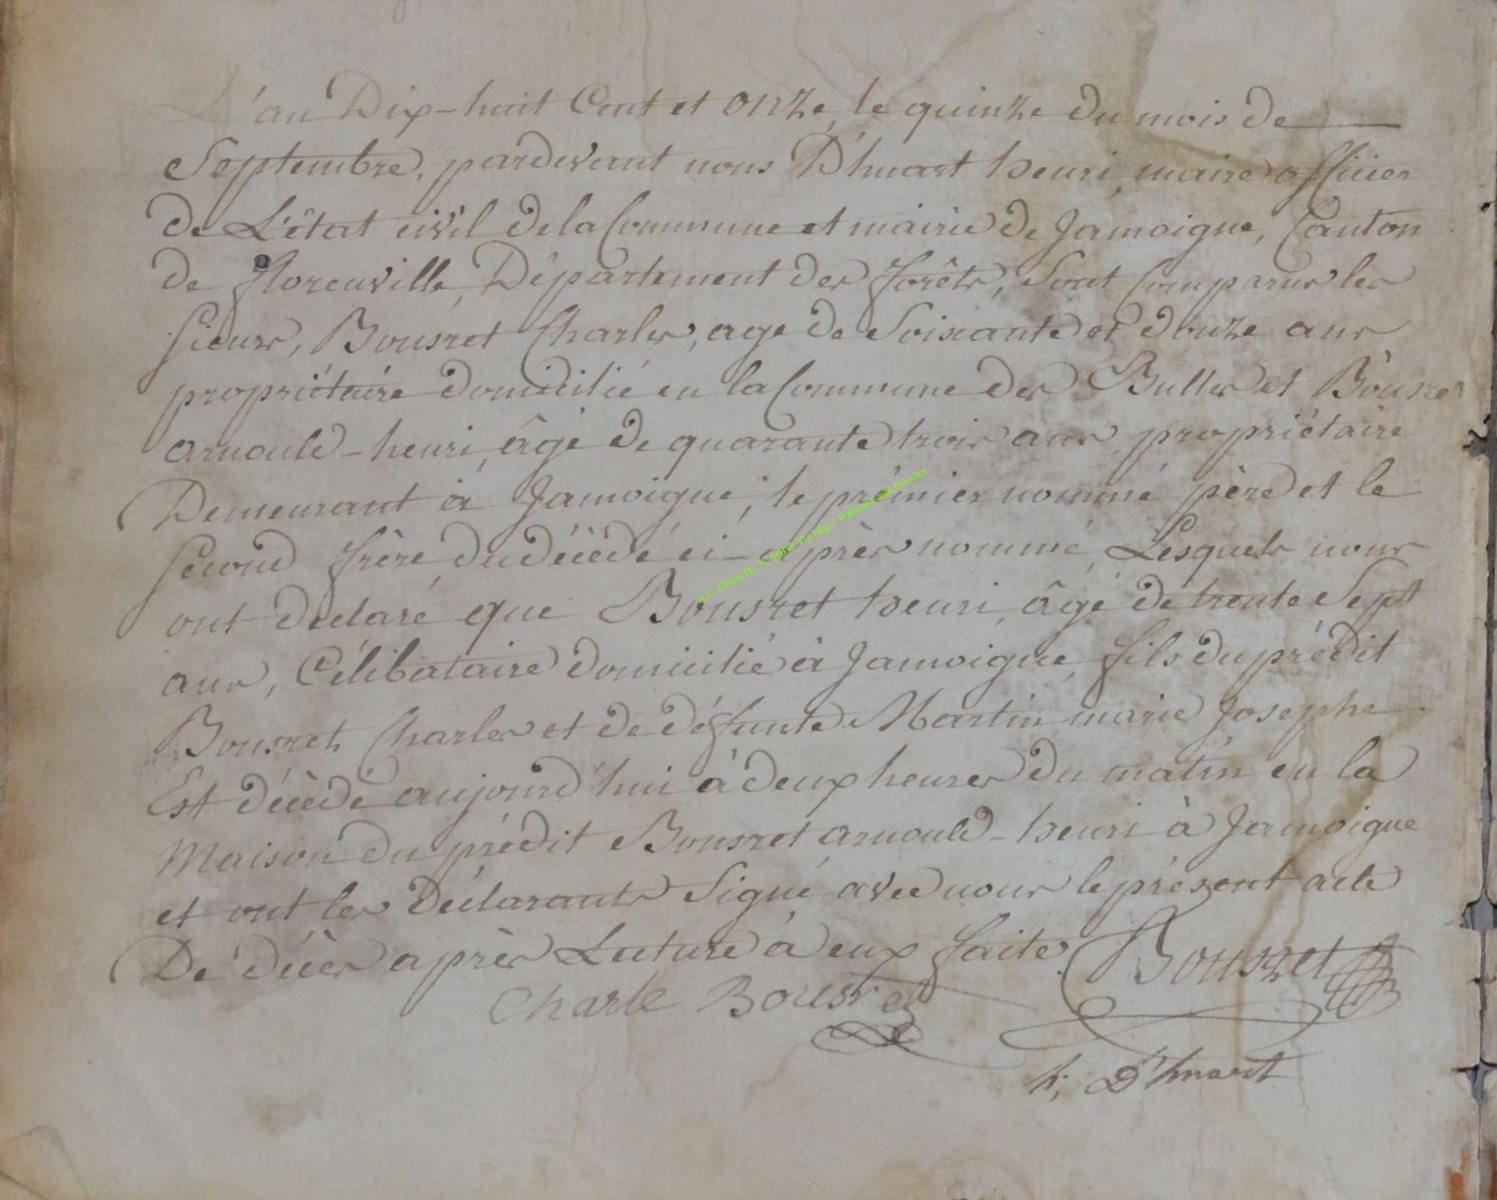 L'an Dix-huit Cent et onze, le quinze du mois de
Septembre, pardevant nous D'huart henri, maire officier
de L'état civil de la Commune et mairie de Jamoigne, Canton
de florenville, Département des forêts, Sont Comparus les
sieurs, Bousret Charles, agé de Soixante et douze ans
propriétaire domicilié en la Commune des Bulles et Bousret
arnould-henri, âgé de quarante trois ans propriétaire
Demeurant à Jamoigne, le prémier nommé père et le
second frère du décédé ci-après nommé, Lesquels nous
ont déclaré que Bousret henri, âgé de trente Sept
ans, Célibataire domicilié à Jamoigne, fils du prédit
Bousret Charles et de défunte Martin marie Josephe
Est décédé aujourd'hui à deux heures du matin en la
Maison du prédit Bousret arnould-henri à Jamoigne
et ont les Déclarants Signé avec nous le présent acte
De décès après Lecture à eux faite. Bousret
Charle Bousret
h; D'huart